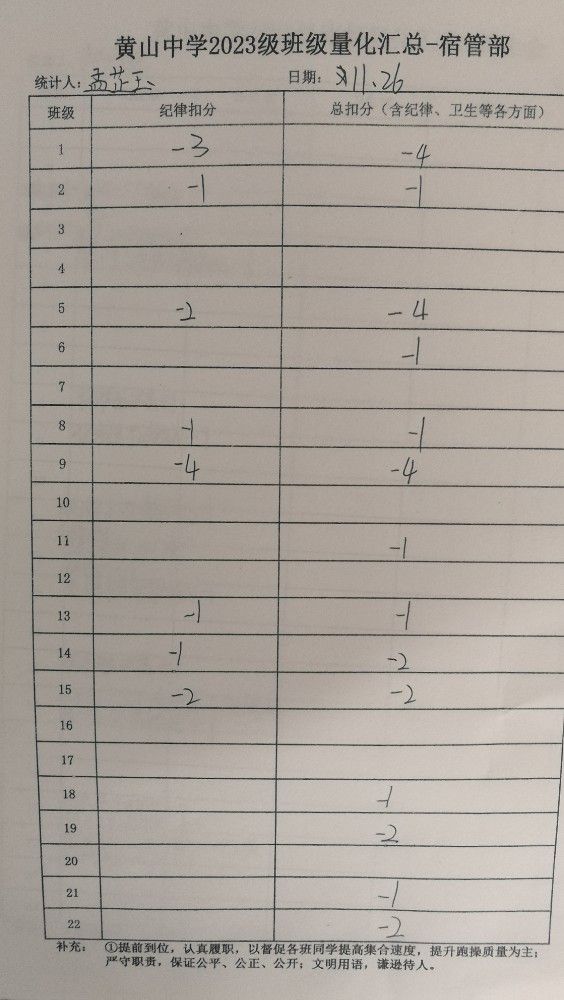 黄山中学2023级班级量化汇总-宿管部
统计人：孟芷玉 日期：11.26
班级 纪律扣分 总扣分（含纪律、卫生等各方面）
1 -3 -4
2 -1 -1
3
4
5 -2 -4
6 -1
7
8 -1 -1
9 -4 -4
10
11 -1
12
13 -1 -1
14 -1 -2
15 -2 -2
16
17
18 -1
19 -2
20
21 -1
22 -2
补充： ①提前到位，认真履职，以督促各班同学提高集合速度，提升跑操质量为主；
严守职责，保证公平、公正、公开；文明用语，谦逊待人。